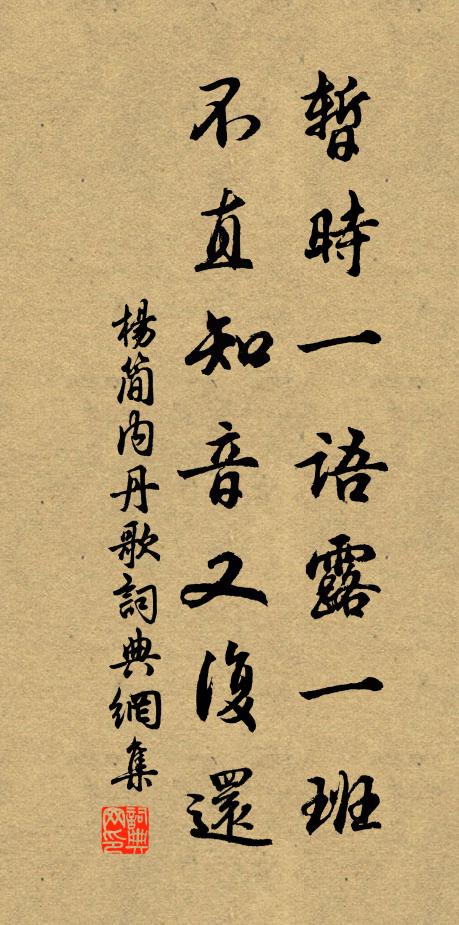 暫時一語露一班
不直知音又復還
楊簡內丹歌詞典網集
詞典网印